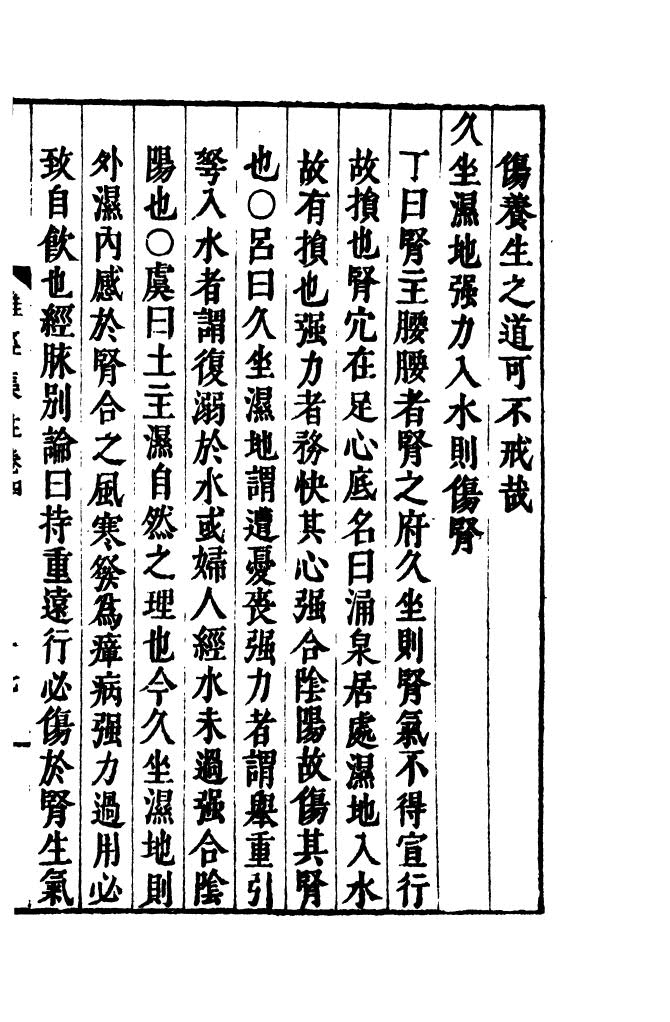 傷養生之道可不戒哉
久坐濕地强力入水則傷腎
丁曰腎主腰腰者腎之府久坐則腎氣不得宣行
故損也腎穴在足心底名曰涌泉居處濕地入水
故有損也强力者務快其心强合陰陽故傷其腎
也○呂曰久坐濕地謂遭憂喪强力者謂舉重引
弩入水者謂復溺於水或婦人經水未過强合陰
陽也○虞曰土主濕自然之理也今久坐濕地則
外濕內感於腎合之風寒發爲瘴病强力過用必
致自飲也經脉別論曰持重遠行必傷於腎生氣
難經集註卷四